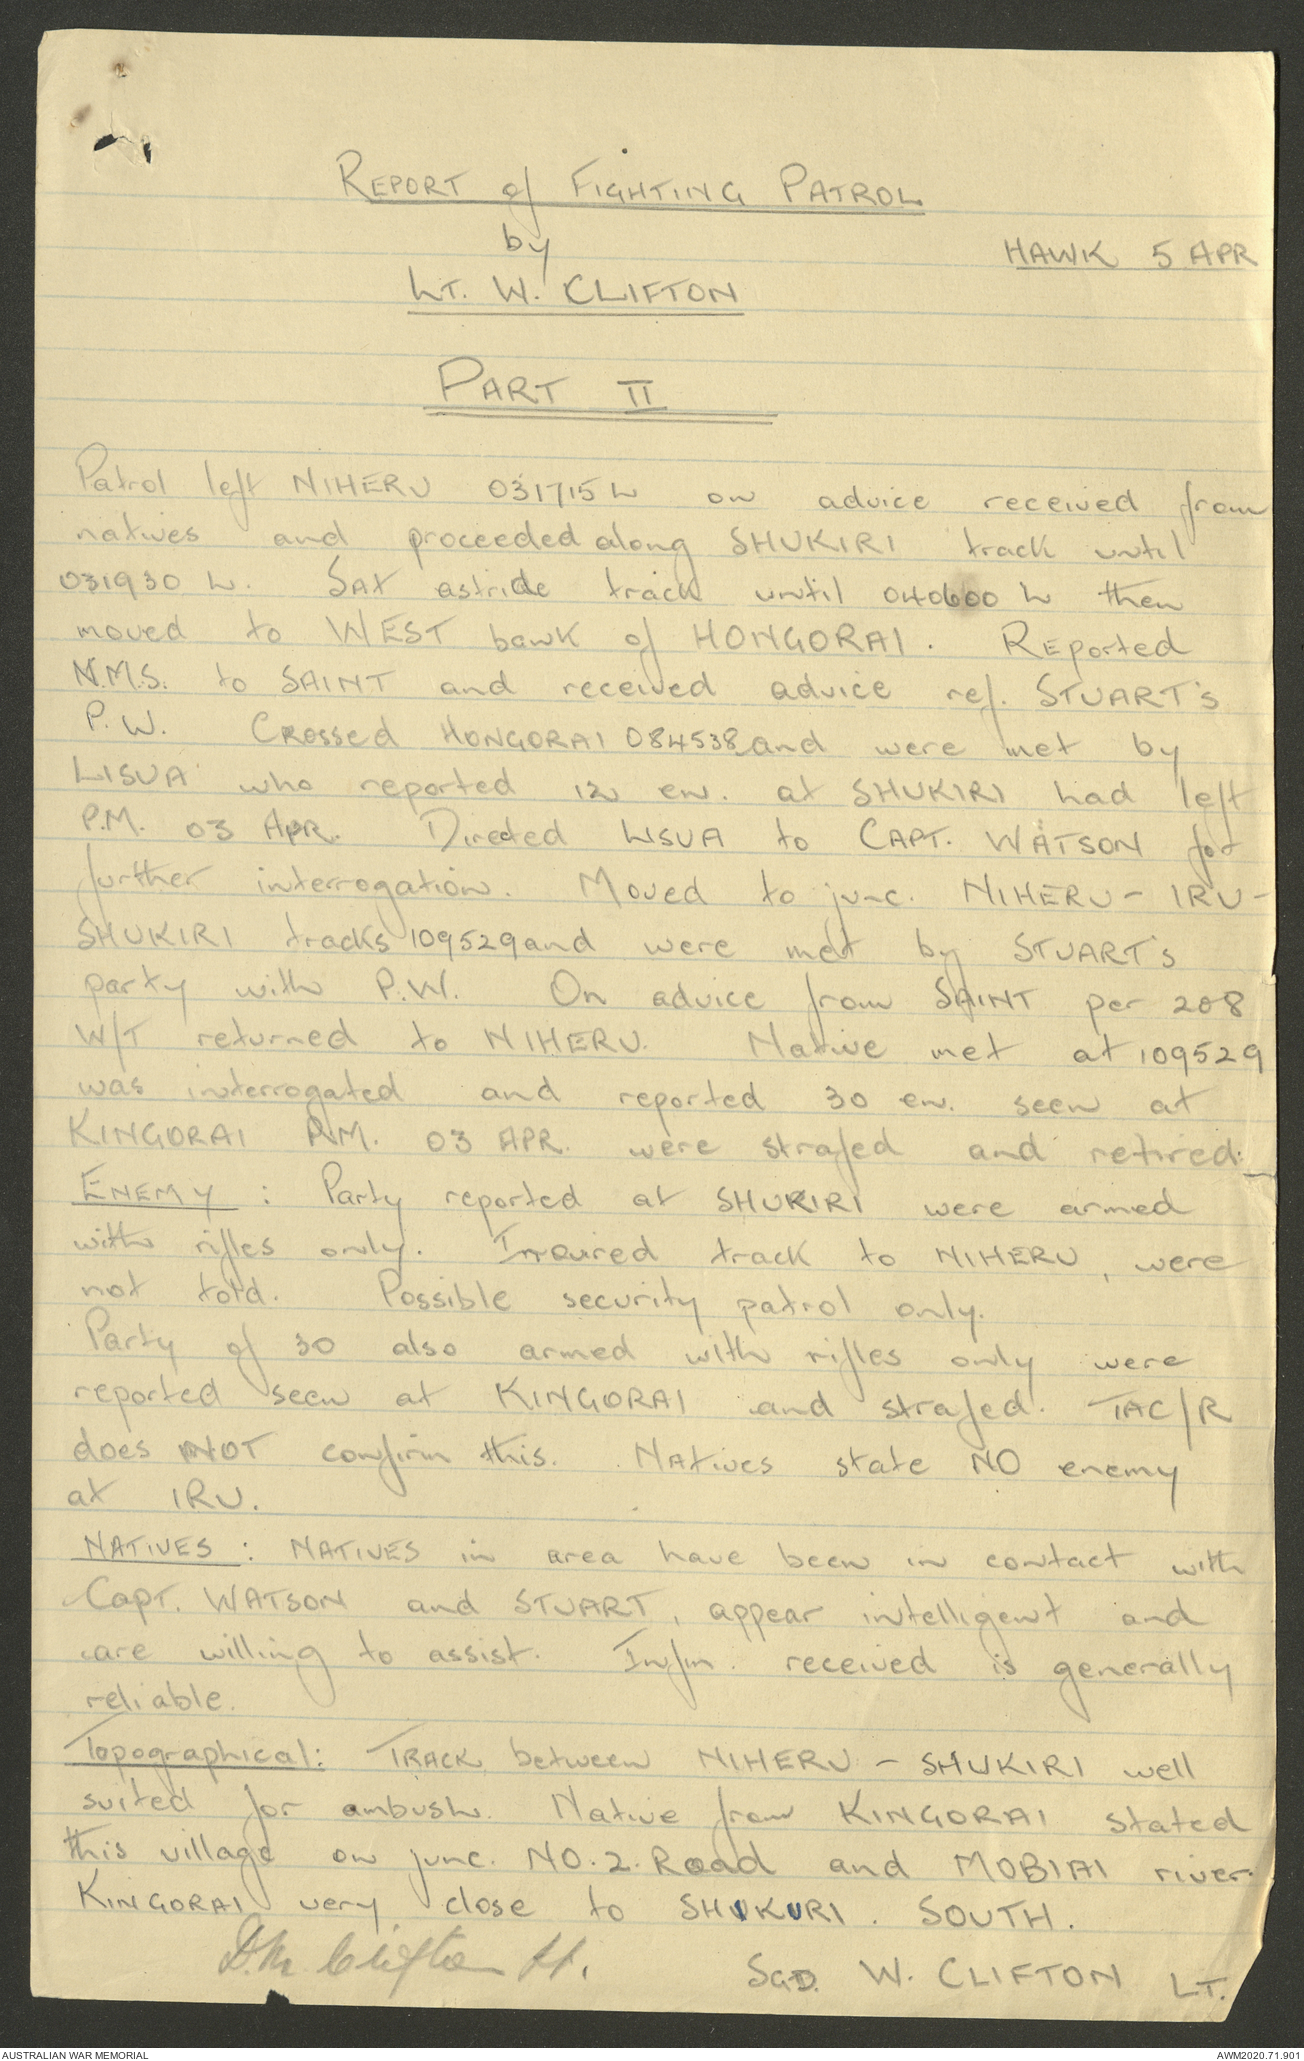 REPORT of FIGHTING PATROL
by
HAWK 5 APR
LT. W. CLIFTON
PART II
Patrol left NIHERU 031715 L on advice received from
natives and proceeded along SHUKIRI track until
031930 L. Sat astride track until 040600 L then
moved to WEST bank of HONGORAI. REported
N.M.S. to SAINT and received advice ref. STUART's
P.W. Crossed HONGORAI 084538 and were met by
LISUA who reported 12 en. at SHUKIRI had left
P.M. 03 APR. Directed LISUA to CAPT. WATSON for
further interrogation. Moved to junc. NIHERU - IRU -
SHUKIRI tracks 109529 and were met by STUART's
party with P.W. On advice from SAINT per 208
W/T returned to NIHERU. Native met at 109529
was interrogated and reported 30 en. seen at
KINGORAI P.M. 03 APR. were strafed and retired.
ENEMY : Party reported at SHUKIRI were armed
with rifles only. Inquired track to NIHERU, were
not told. Possible security patrol only.
Party of 30 also armed with rifles only were
reported seen at KINGORAI and strafed. TAC/R
does NOT confirm this. Natives state NO enemy
at IRU.
NATIVES : NATIVES in area have been in contact with
Capt. WATSON and STUART, appear intelligent and
are willing to assist. Infm. received is generally
reliable.
Topographical: TRACK between NIHERU - SHUKIRI well
suited for ambush. Native from KINGORAI stated
this village on junc. NO.2. Road and MOBIAI river.
KINGORAI very close to SHUKURI. SOUTH.
Clifton Lt.
SGD. W. CLIFTON LT.
AUSTRALIAN WAR MEMORIAL
AWM2020.71.901